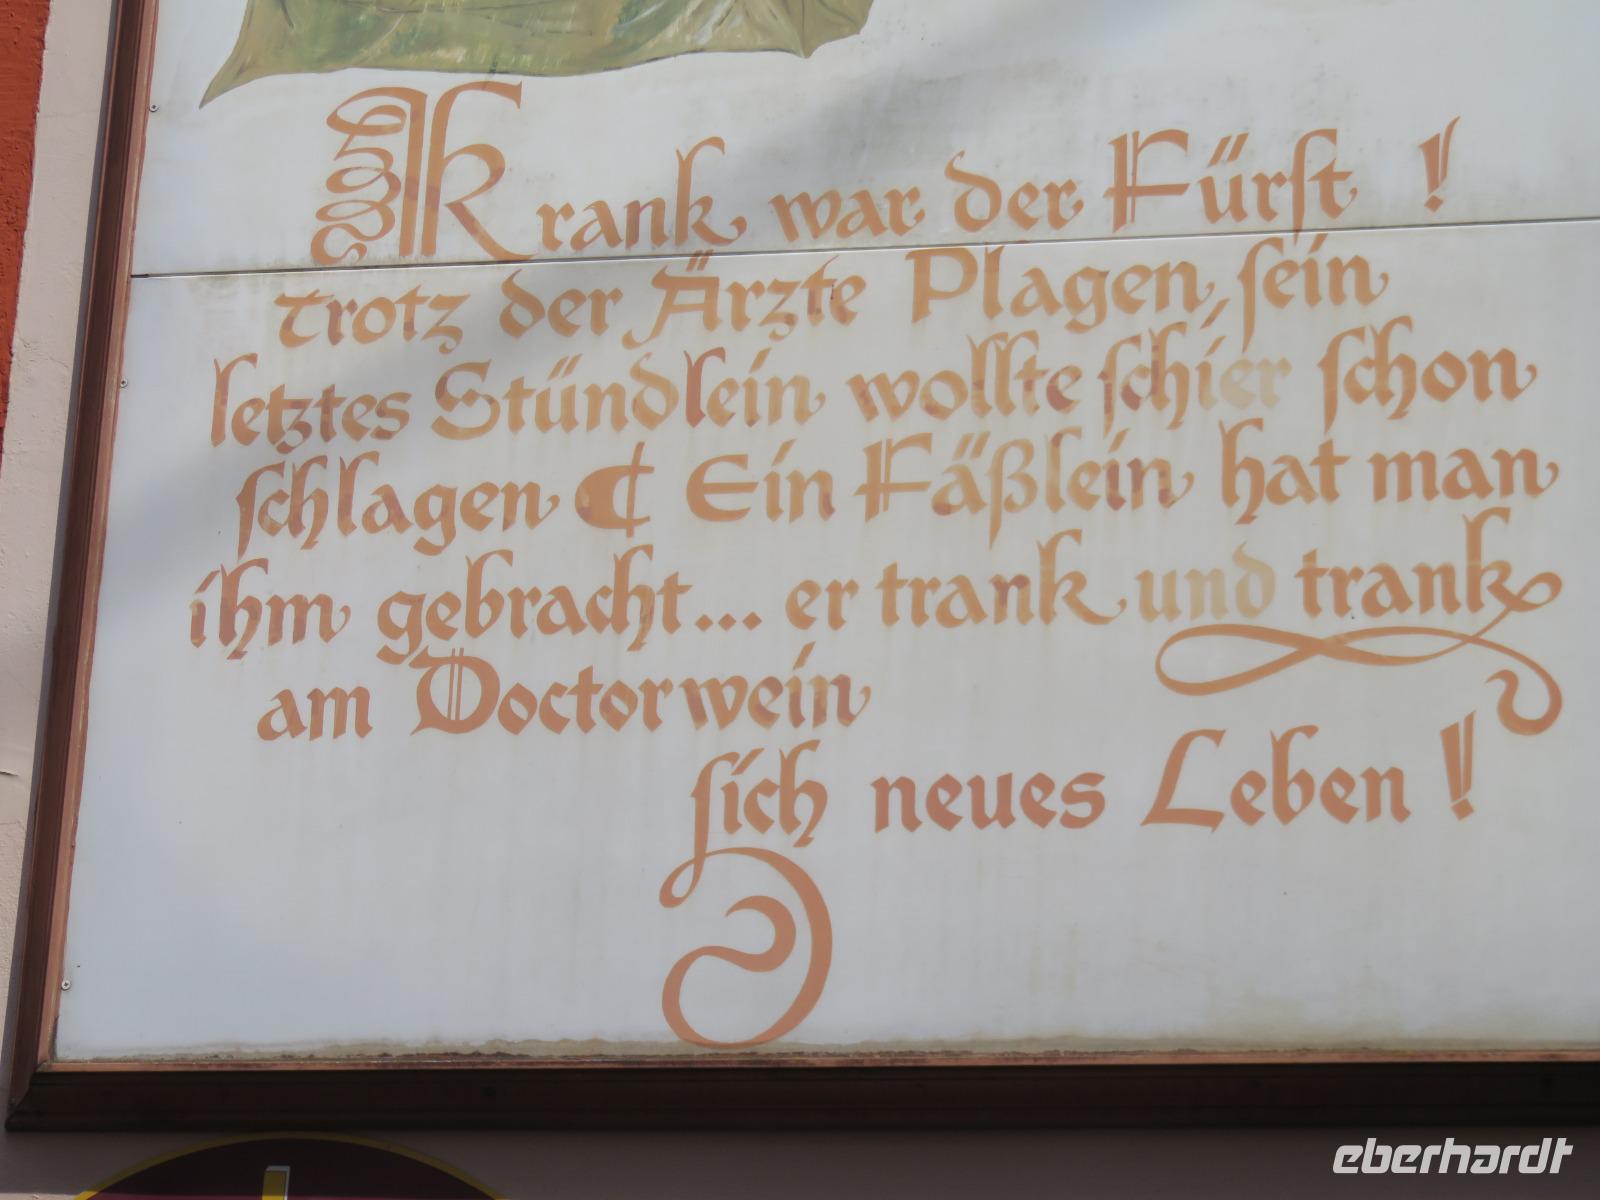 Krank war der Fürst !
trotz der Ärzte Plagen, sein
letztes Stündlein wollte schier schon
schlagen ¢ Ein Fäßlein hat man
ihm gebracht... er trank und trank
am Doctorwein
sich neues Leben !
eberhardt